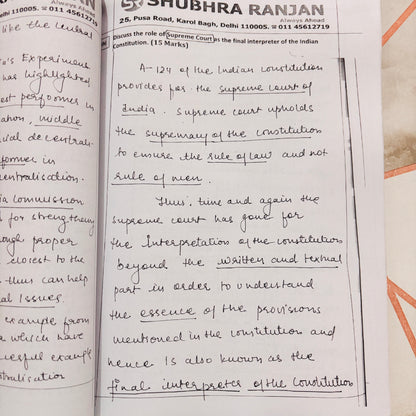 like the central
's Experiment
has highlighted
est performer in
ation, middle
cial decentrali-
former in
entralisation.
ia commission
d for strengthening
ough proper
closest to the
thus can help
al Issues.
example from
a which have
cessful example
tralisation
110005. 011 45612719
SHUBHRA RANJAN
Always Ahead
25, Pusa Road, Karol Bagh, Delhi 110005. 011 45612719
Discuss the role of Supreme Court as the final interpreter of the Indian
Constitution. (15 Marks)
A-124 of the Indian constitution
provides for the supreme court of
India. Supreme court upholds
the supremacy of the constitution
to ensure the rule of law and not
rule of men.
Thus, time and again the
supreme court has gone for
the Interpretation of the constitution
beyond the written and textual
part in order to understand
the essence of the provisions
mentioned in the constitution and
hence is also known as the
final interpreter of the Constitution